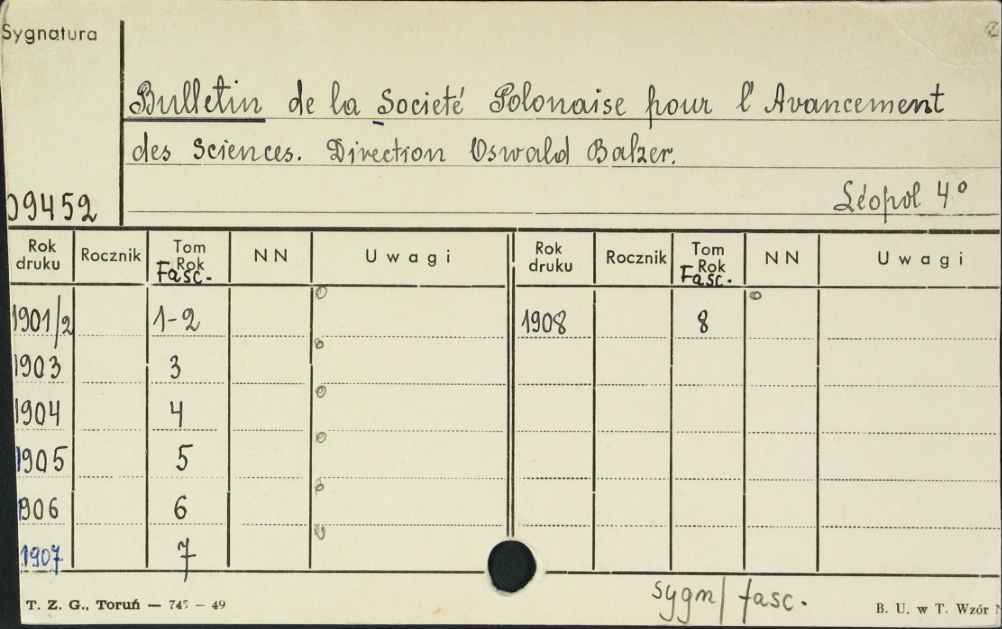 Sygnatura
Bulletin de la Societé Polonaise pour l'Avancement
des Sciences. Direction Oswald Balzer.
Léopol 4°
09452
Rok druku Rocznik Tom Rok Fasc. NN Uwagi Rok druku Rocznik Tom Rok Fasc. NN Uwagi
1901/2 1-2 1908 8
1903 3
1904 4
1905 5
1906 6
1907 7
sygn/ fasc.
T. Z. G., Toruń — 745 — 49 B. U. w T. Wzór